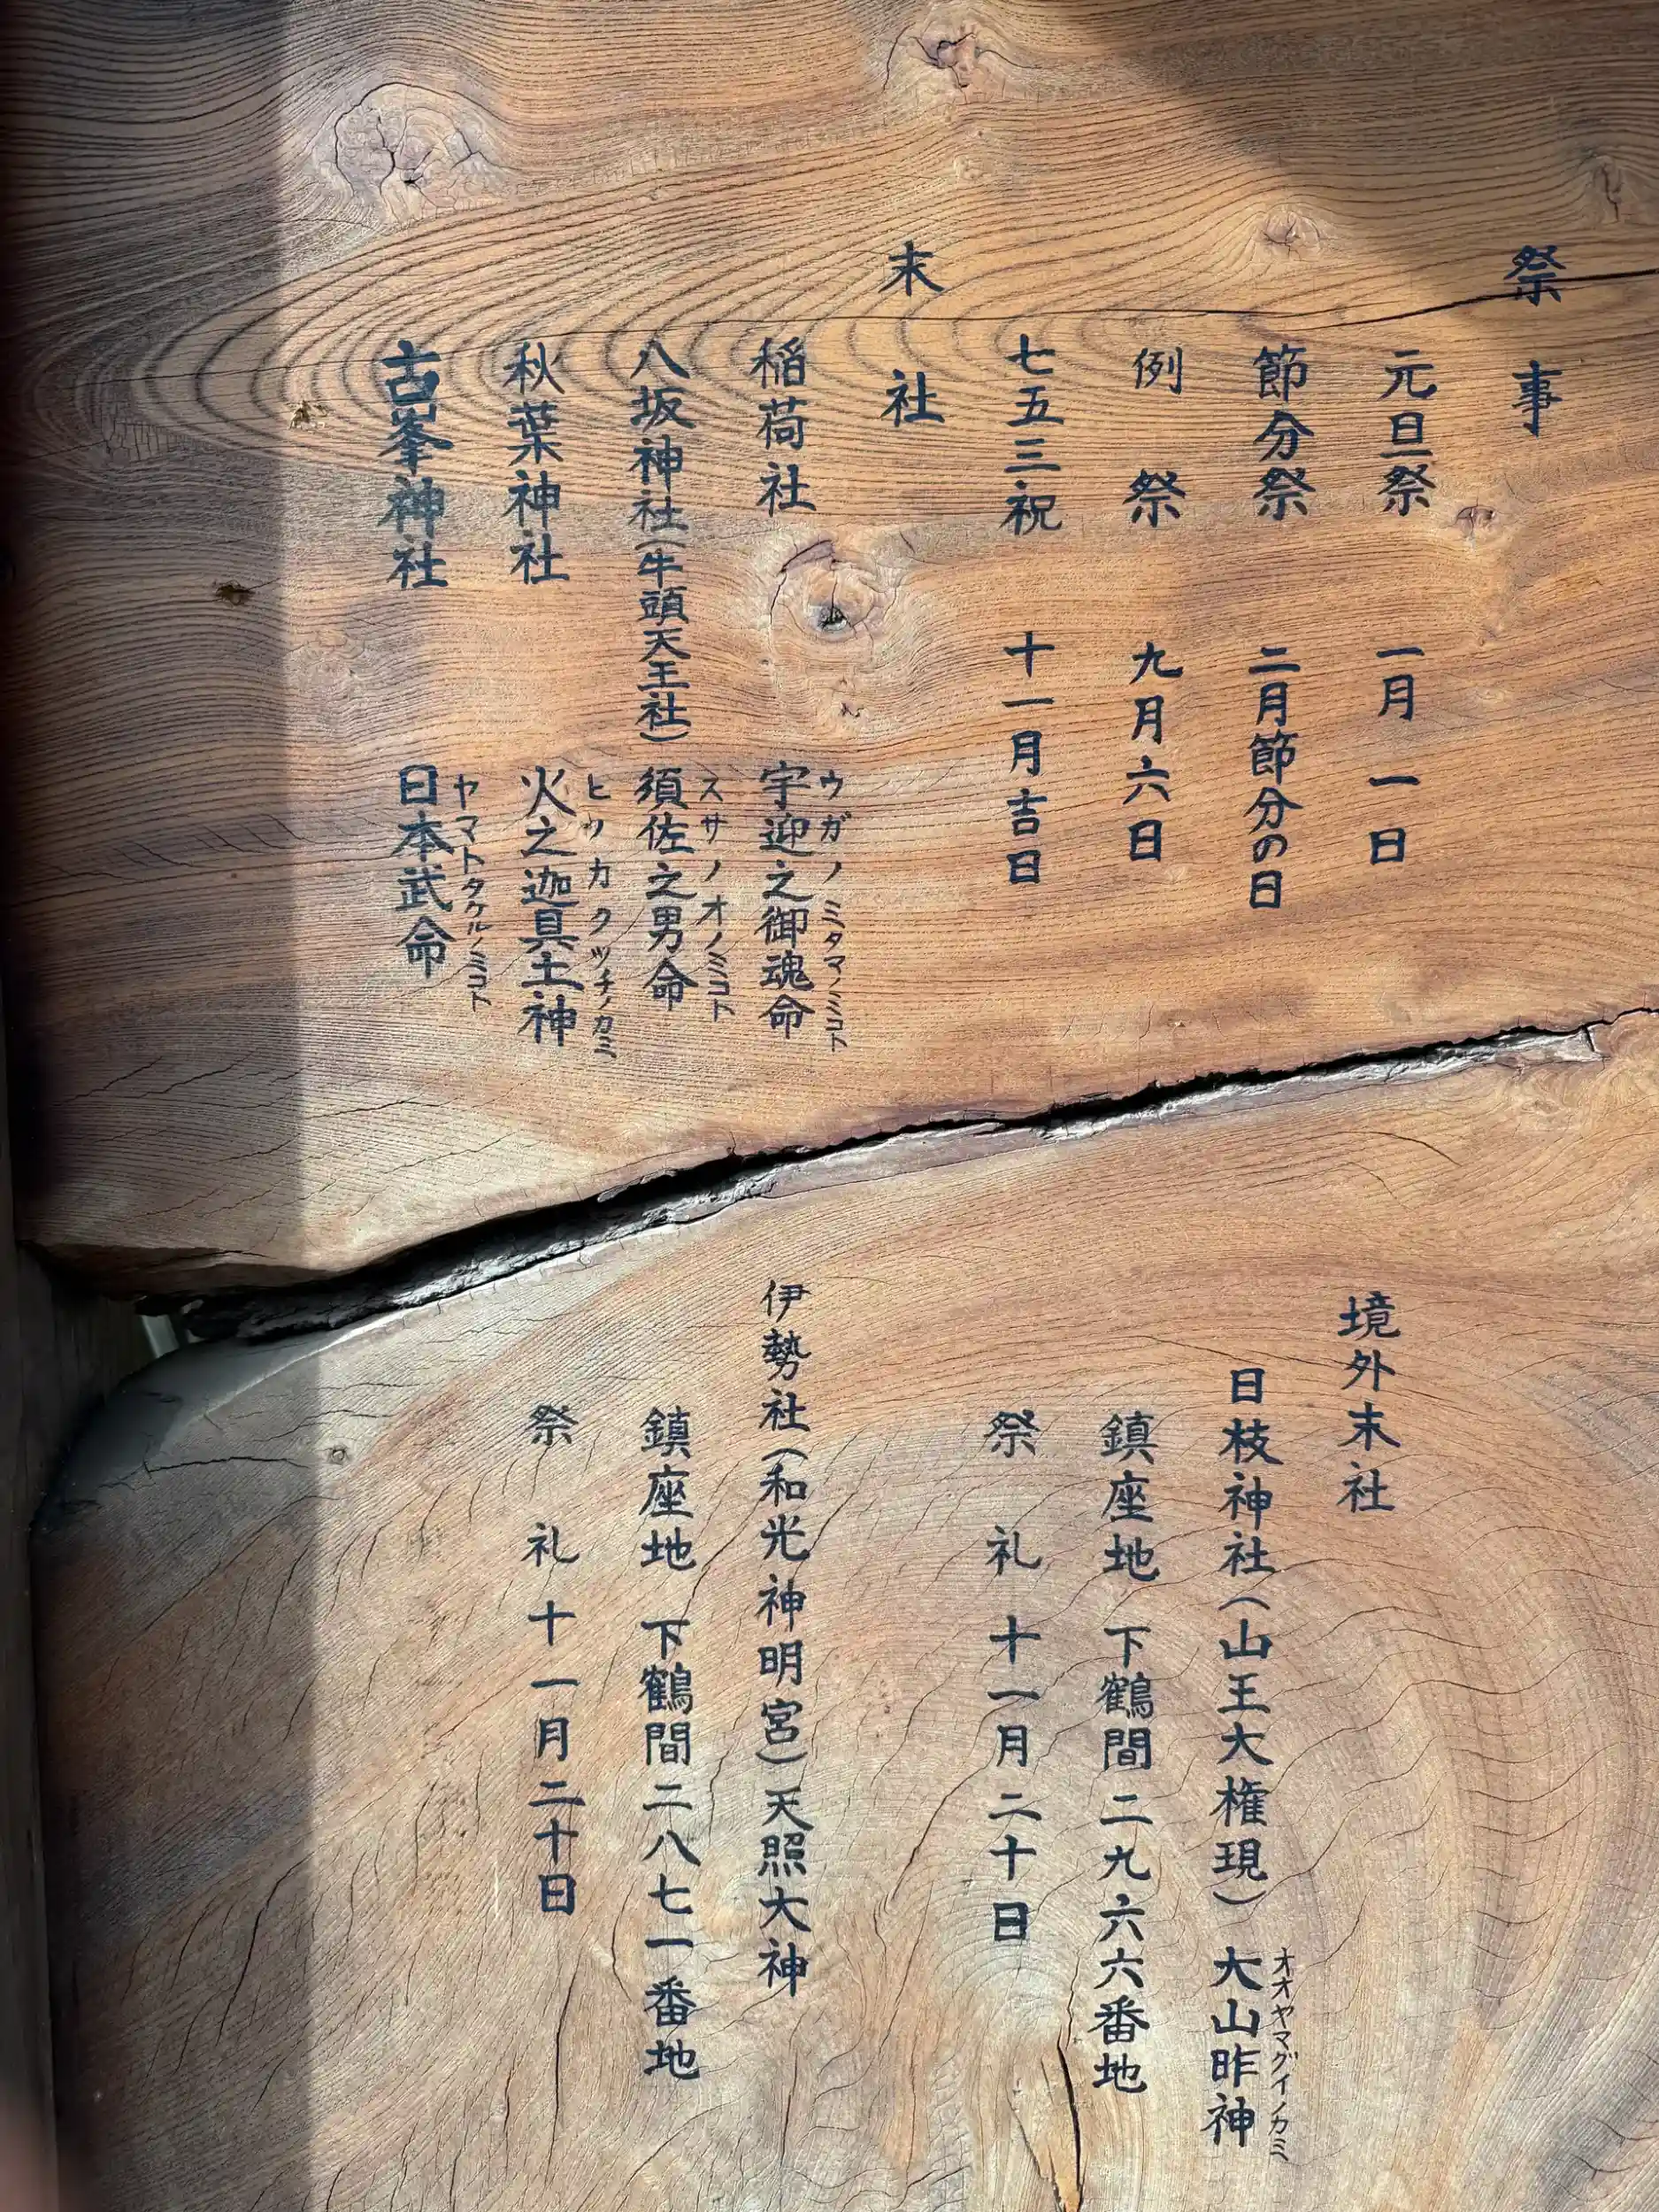 祭事
元旦祭 一月一日
節分祭 二月節分の日
例祭 九月六日
七五三祝 十一月吉日
末社
ウガノミタマノミコト
稲荷社 宇迎之御魂命
スサノオノミコト
八坂神社(牛頭天王社) 須佐之男命
ヒノカクツチノカミ
秋葉神社 火之迦具土神
ヤマトタケルノミコト
古峯神社 日本武命
境外末社
オオヤマグイノカミ
日枝神社(山王大権現) 大山昨神
鎮座地 下鶴間二九六六番地
祭礼 十一月二十日
伊勢社(和光神明宮)天照大神
鎮座地 下鶴間二八七一番地
祭礼 十一月二十日